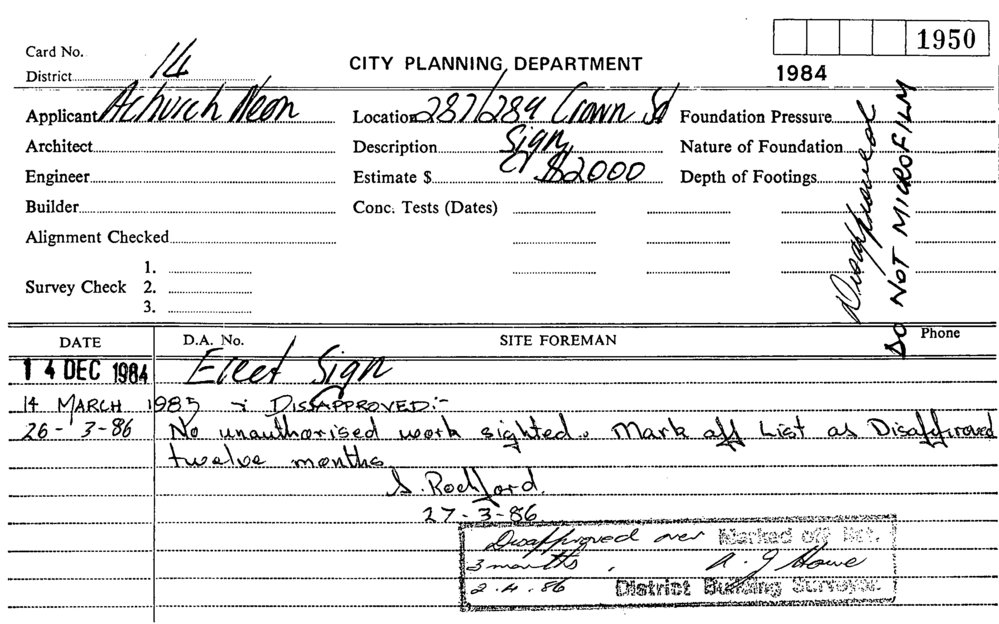 1950
Card No.
District 14
CITY PLANNING DEPARTMENT
1984
Applicant Achurch Neon
Location 287/289 Crown St
Foundation Pressure
Architect
Description Sign
Nature of Foundation
Engineer
Estimate $ $2000
Depth of Footings
Builder
Conc. Tests (Dates)
Alignment Checked
Survey Check
1.
2.
3.
Disapproved
DO NOT MICROFILM
DATE
D.A. No.
SITE FOREMAN
Phone
14 DEC 1984 Erect Sign
14 MARCH 1985 :- DISAPPROVED:-
26-3-86 No unauthorised work sighted. Mark off List as Disapproved
twelve months
S. Rochford.
27-3-86
Disapproved over Marked off list.
3 months, A. J Howe
2.4.86 District Building Surveyor.